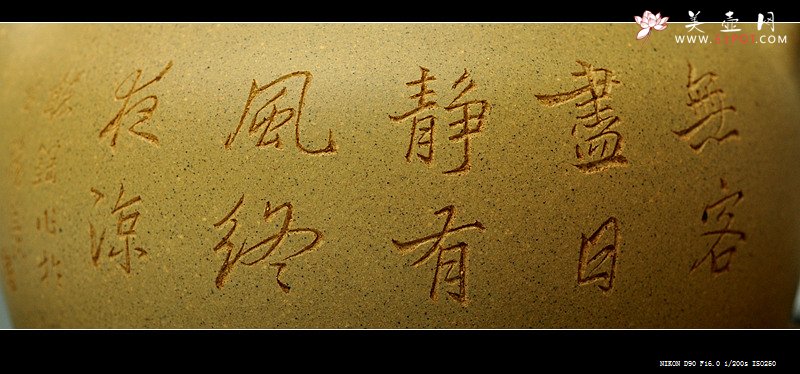 美壶网
WWW.51POT.COM
無客
盡日
静有
風终
夜涼
NIKON D90 F16.0 1/200s ISO250